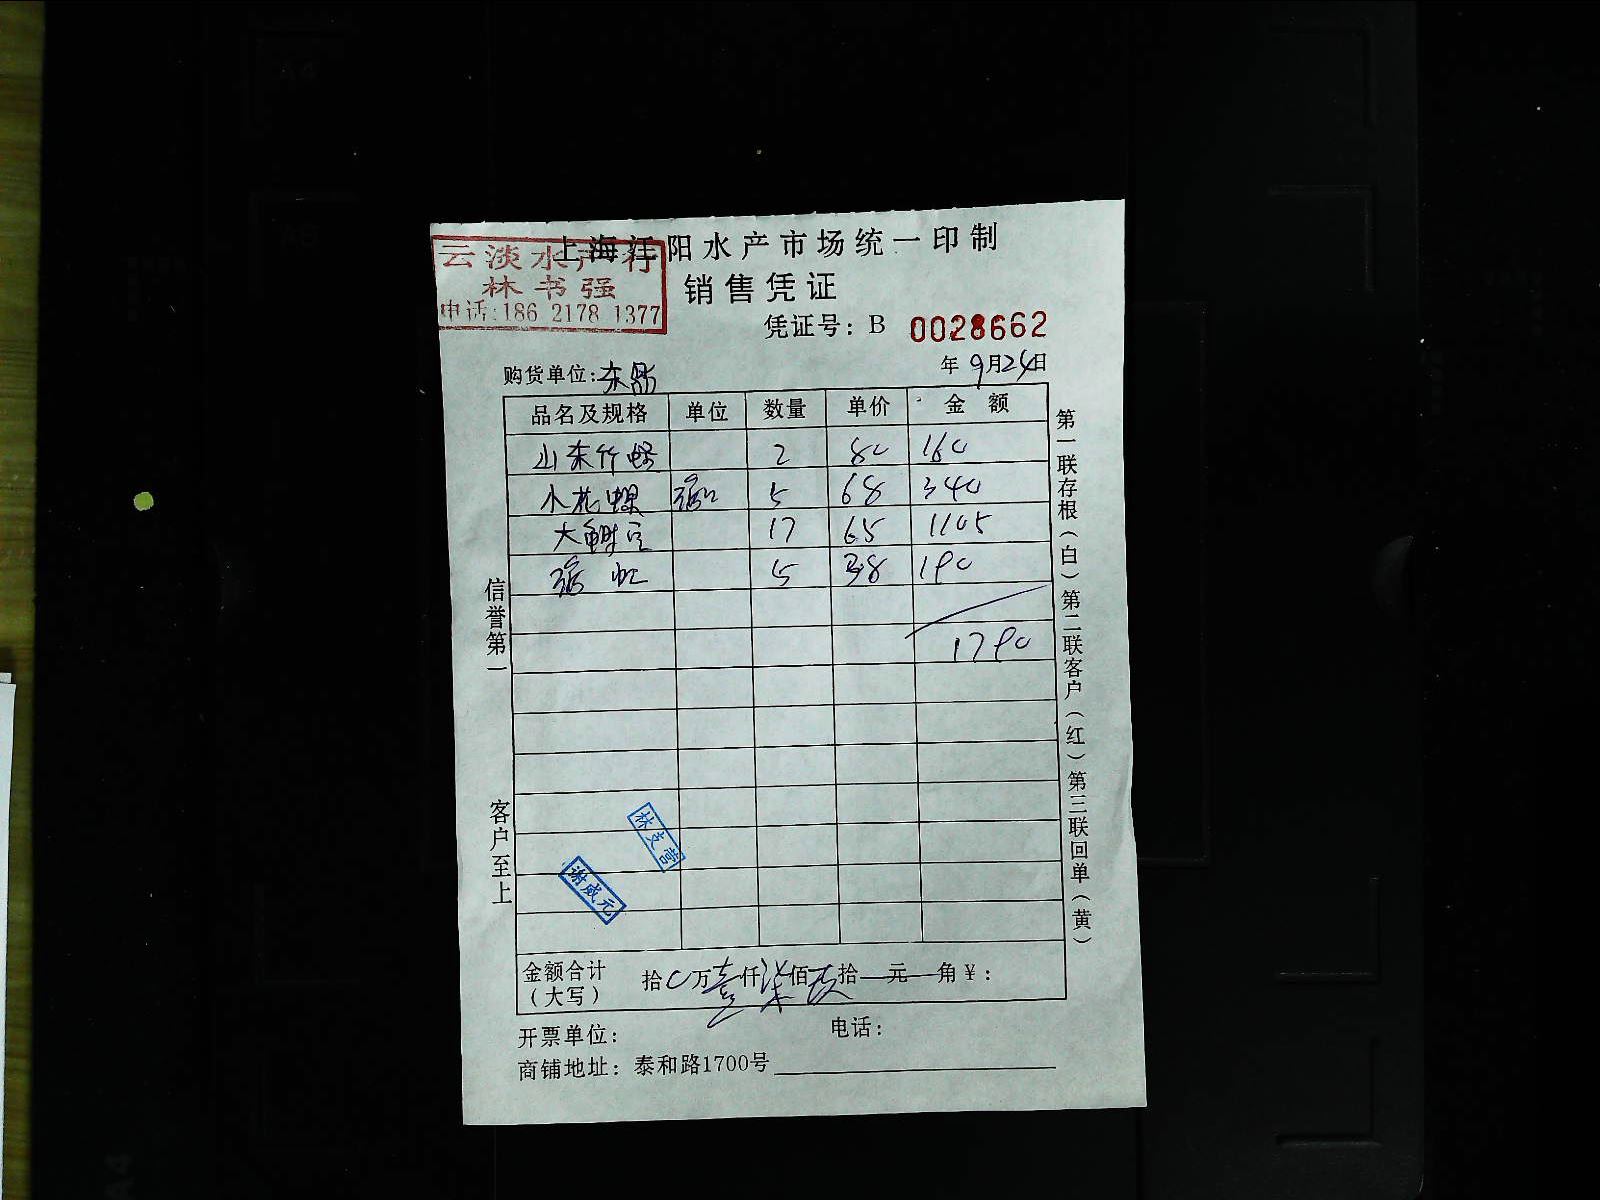 上海江阳水产市场统一印制
云淡水产行
林书强
电话:186 2178 1377
销售凭证
凭证号: B 0028662
购货单位: 东 年 9月24日
品名及规格 单位 数量 单价 金额
山东竹蛏 2 80 160
小花螺 5 68 340
大 17 65 1105
5 38 190
1790
信誉第一
客户至上
第一联存根(白)第二联客户(红)第三联回单(黄)
林支营
谢威元
金额合计(大写) 拾0万壹仟柒佰玖拾元角¥:
开票单位: 电话:
商铺地址: 泰和路1700号